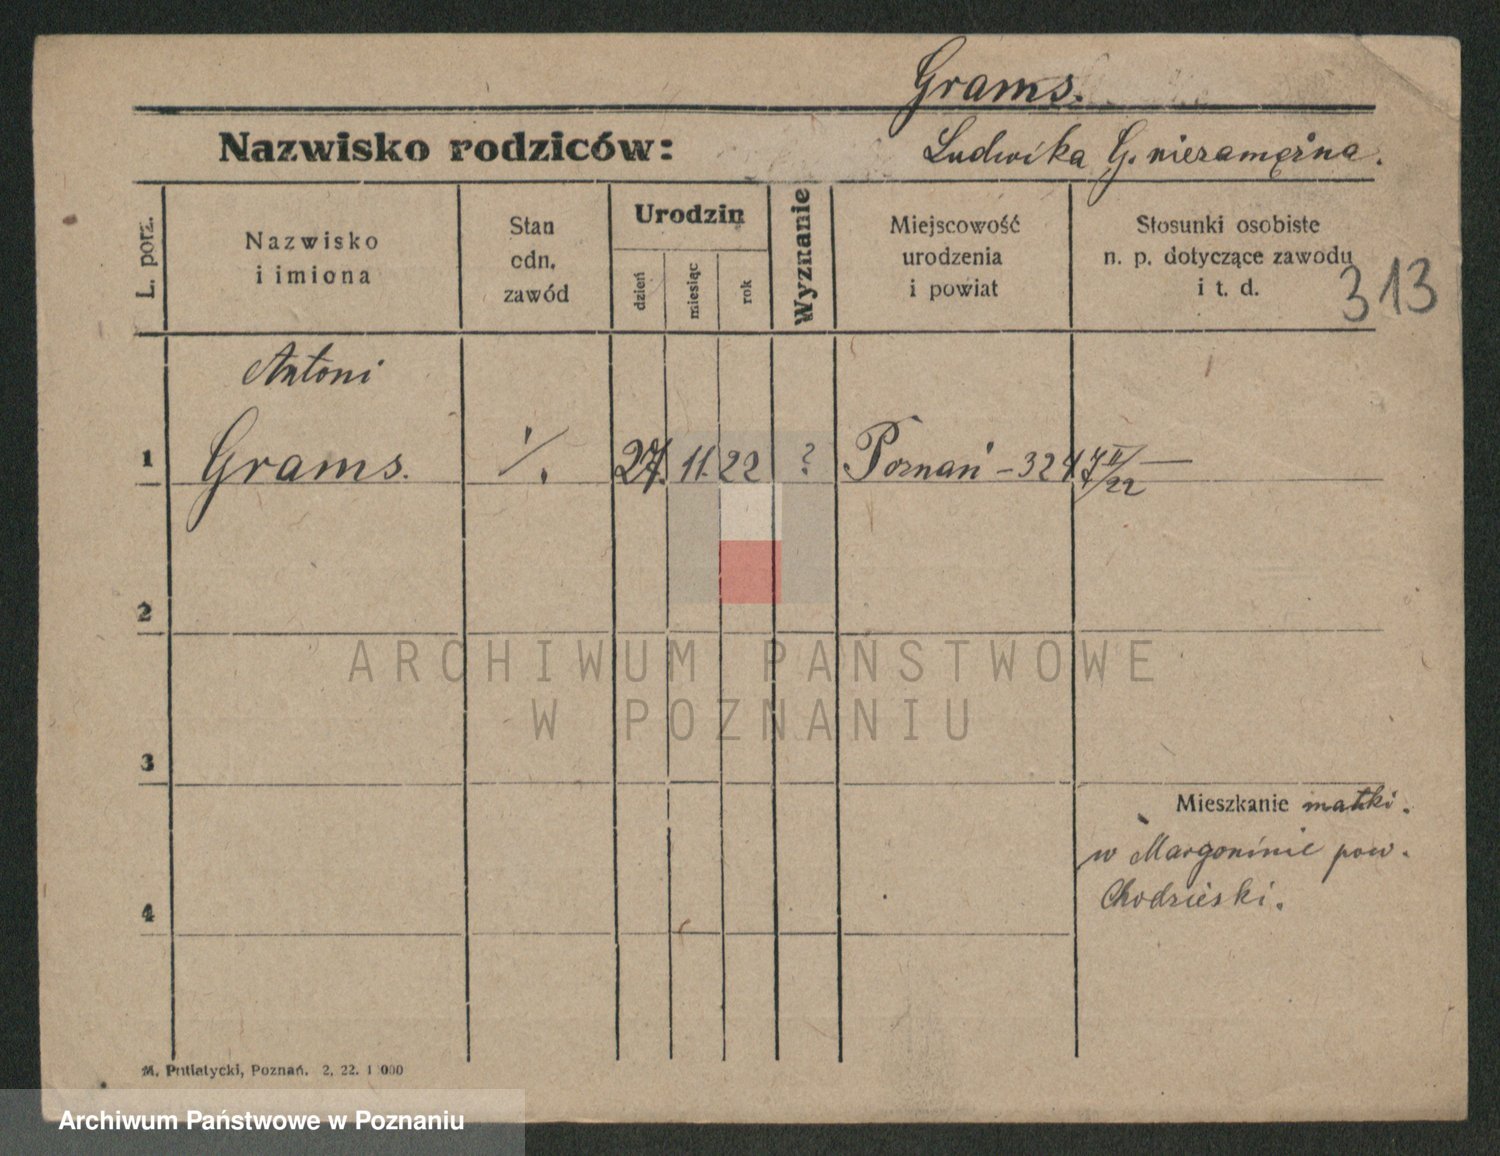 Grams.
Nazwisko rodziców: Ludwika G. niezamężna.
L. porz.
Nazwisko
i imiona
Stan
cdn.
zawód
Urodzin
dzień
miesiąc
rok
Wyznanie
Miejscowość
urodzenia
i powiat
Stosunki osobiste
n. p. dotyczące zawodu
i t. d.
313
Antoni
1 Grams. 27. 11. 22 ? Poznań - 324
2
ARCHIWUM PAŃSTWOWE
W POZNANIU
3
Mieszkanie matki.
w Margoninie pow.
Chodzieski.
4
M. Putiatycki, Poznań. 2, 22. 1 000
Archiwum Państwowe w Poznaniu